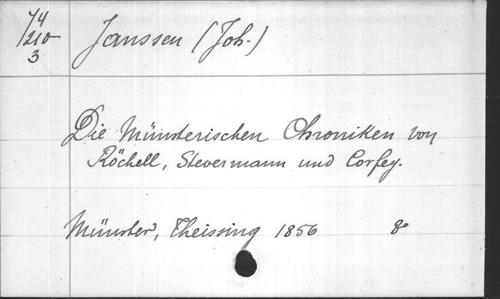 74
210
3
Janssen (Joh.)
Die Münsterischen Chroniken von
Röchell, Stevermann und Corfey.
Münster, Theissing 1856 8°